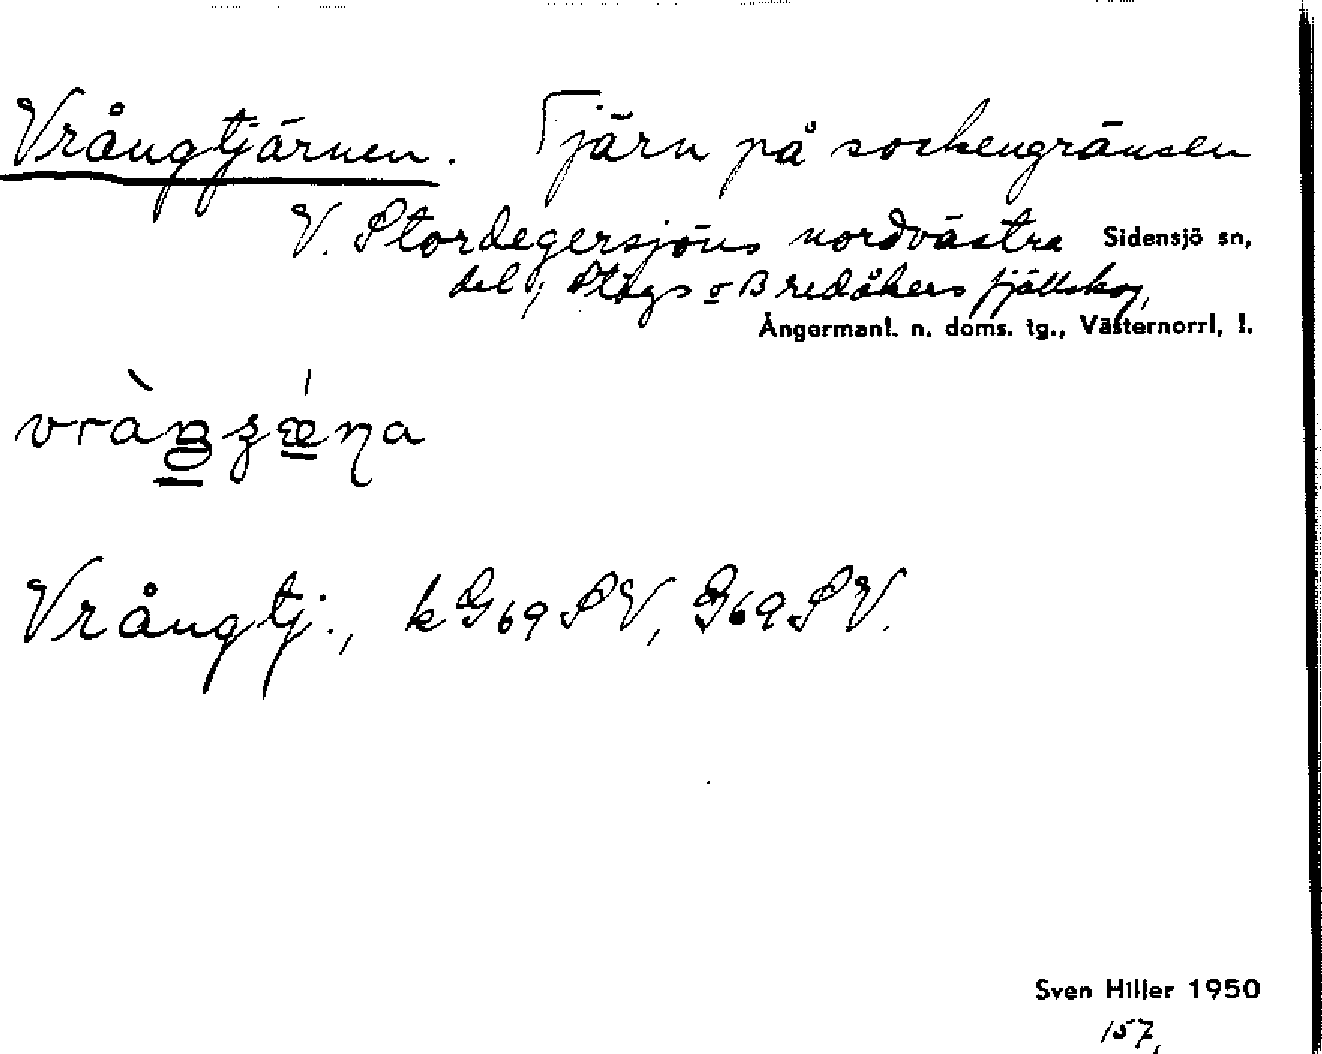 Vrångtjärnen. Tjärn på sockengränsen
V. Stordegersjöns nordvästra Sidensjö sn,
del, Stigs o Bredåkers fjällskog,
Ångermanl. n. doms. tg., Västernorrl, l.
Vrångtj., k G69SV, G69SV.
Sven Hiller 1950
157,